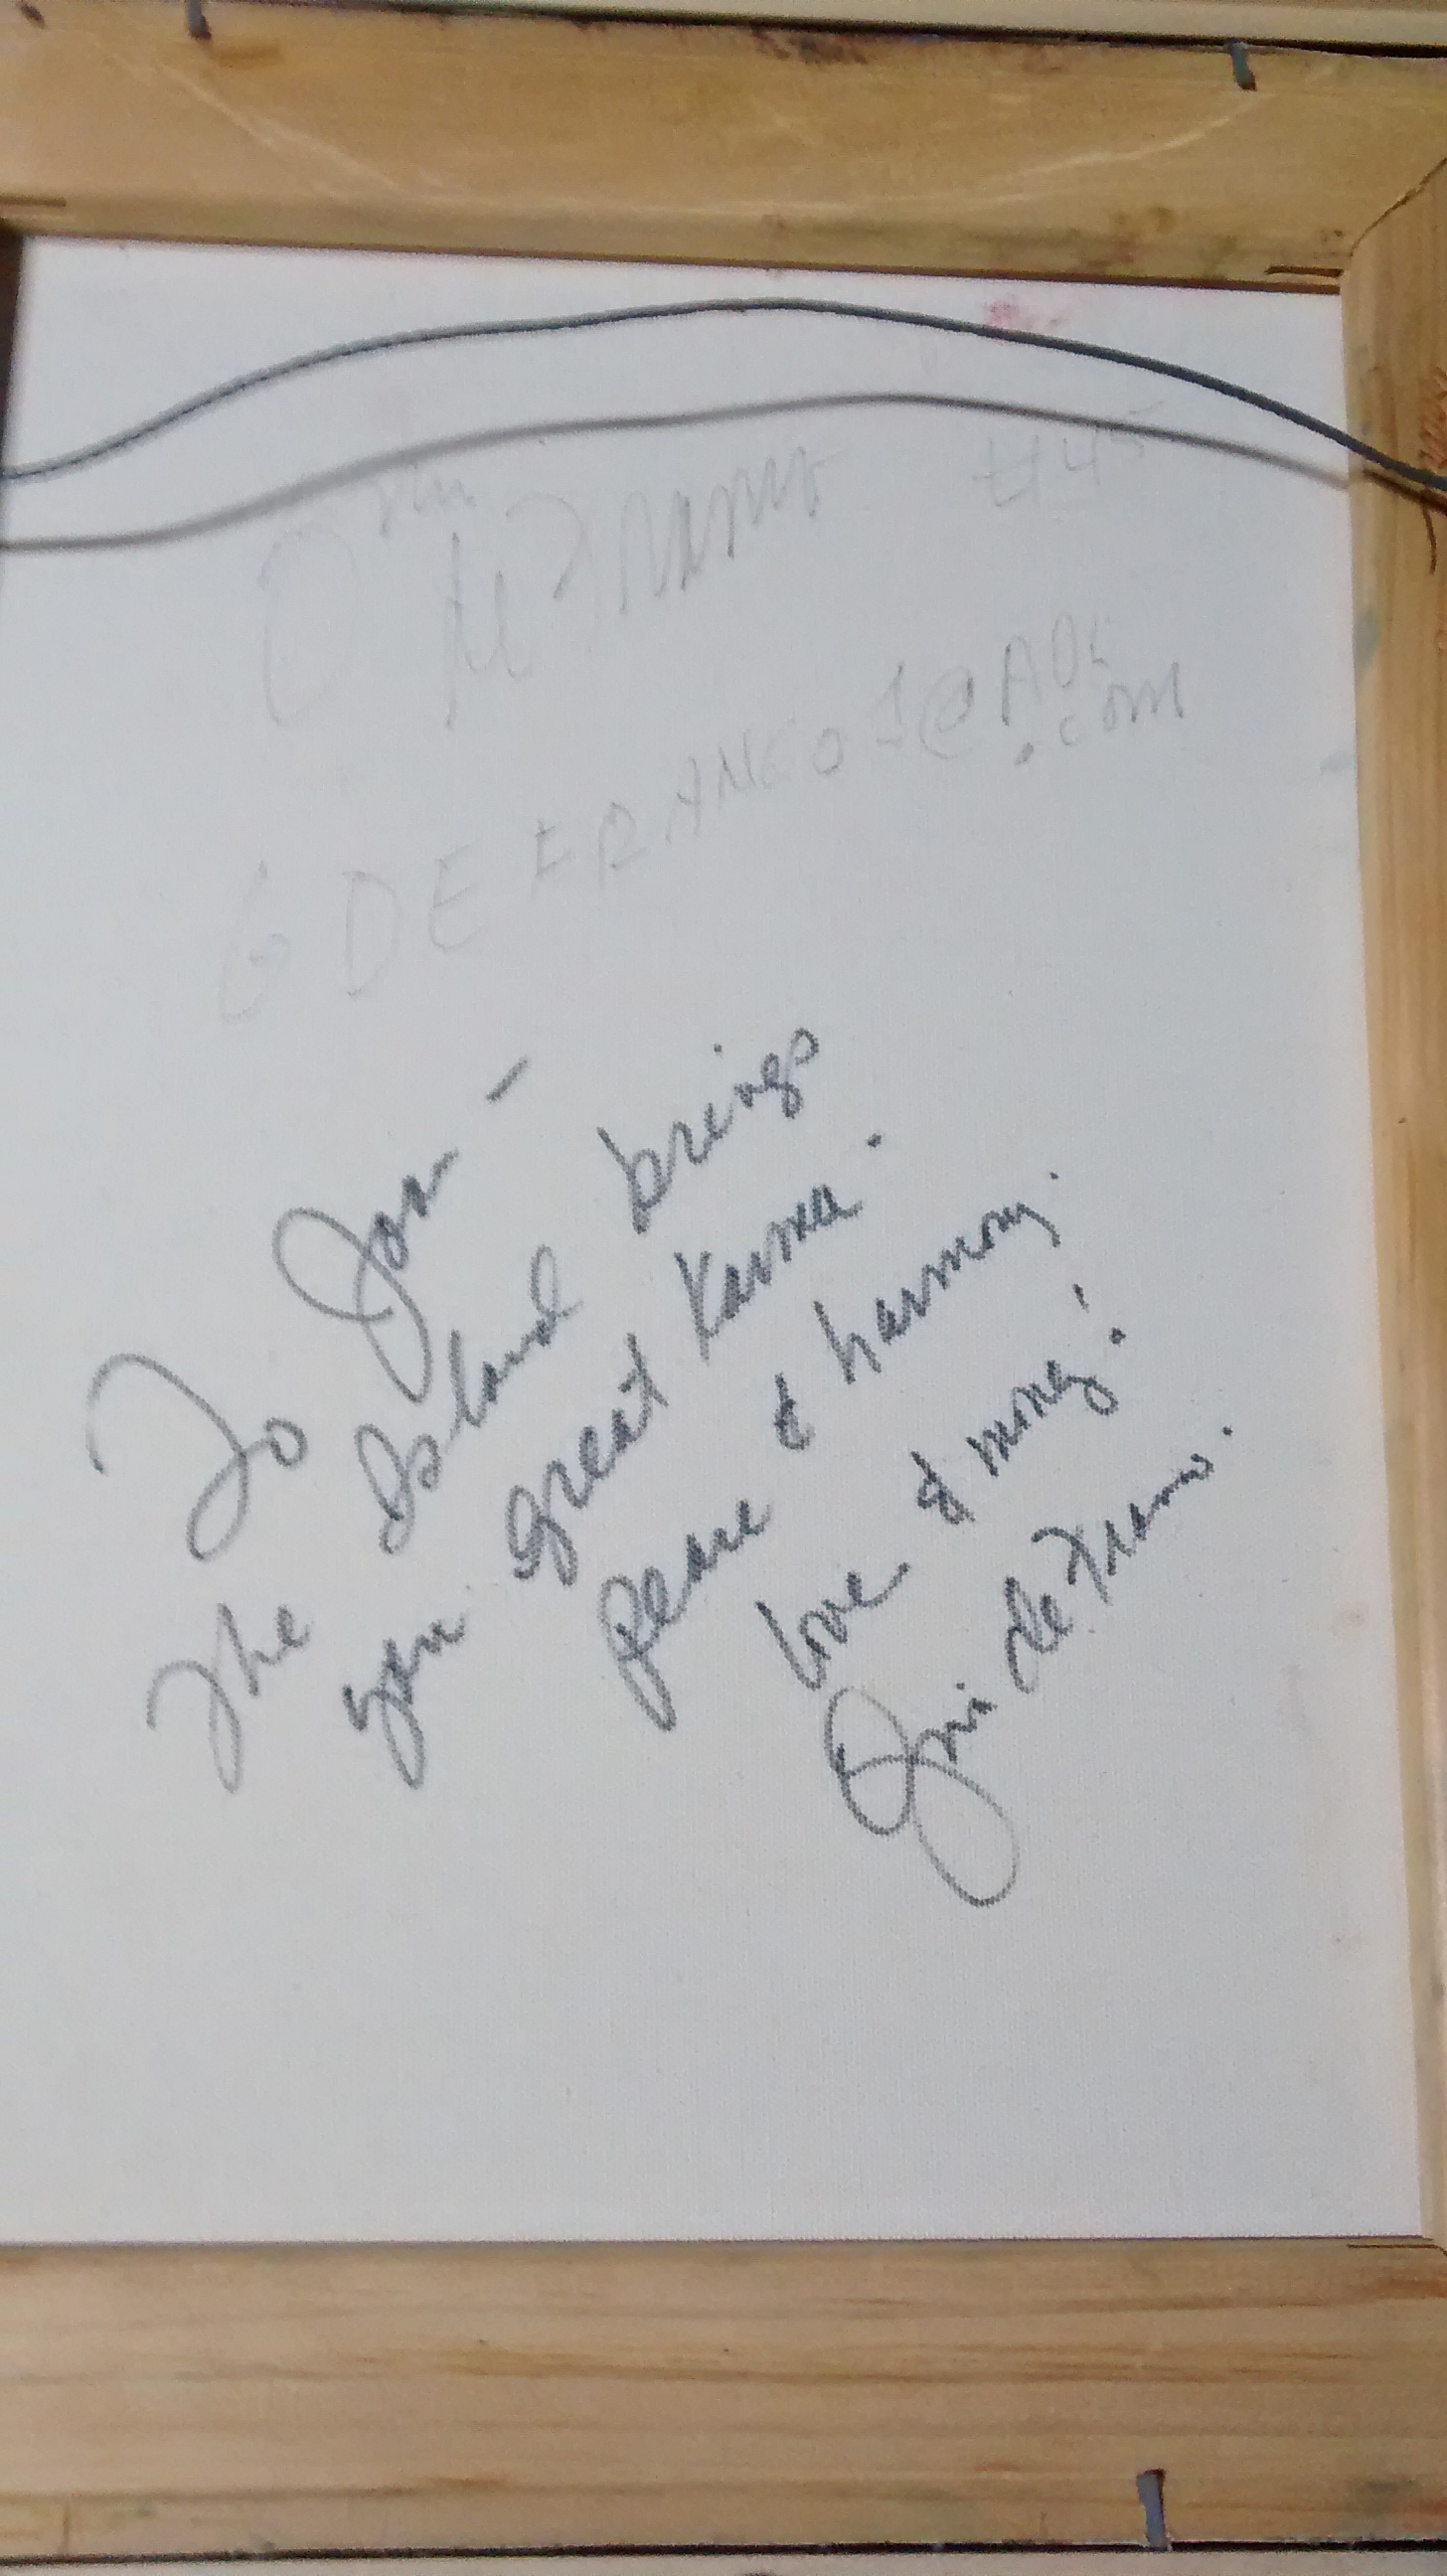 #45
GDEFRANCO1@AOL
.COM
To Jon -
The Island brings
you great Karma.
peace & harmony.
love & money!
de Franco.